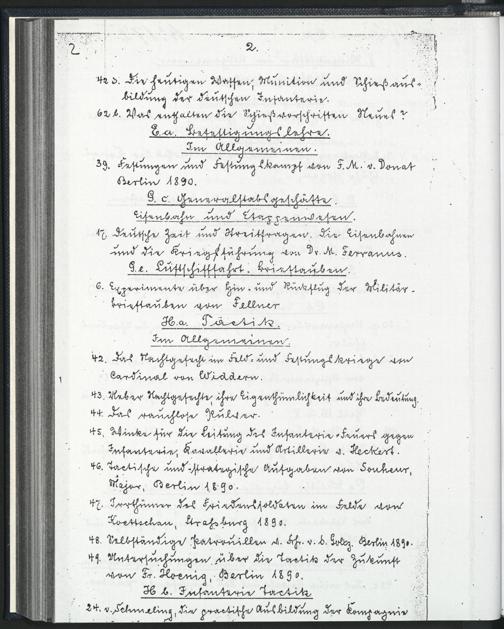 2
2.
42 3. Die heutigen Waffen, Munition und Schießaus-
bildung der deutschen Infanterie.
62 b. Was enthalten die Schießvorschriften Neues?
E.a. Befestigungslehre.
Im Allgemeinen.
39. Festungen und Festungskampf von F. M. v. Donat
Berlin 1890.
G. c. Generalstabsgeschäfte.
Eisenbahn und Etappenwesen.
17. Deutsche Zeit und Streitfragen. Die Eisenbahnen
und die Kriegsführung von Dr. M.
G.e. Luftschifffahrt. Brieftauben.
6. Experimente über Hin- und Rückflug der Militär-
brieftauben von Fellner
H.a. Tactik.
Im Allgemeinen.
42. Das Nachtgefecht im Feld- und Festungskriege von
Cardinal von Widdern.
43. Ueber Nachtgefechte, ihre Eigenthümlichkeit und ihre Bedeutung.
44. Das rauchlose Pulver.
45. Winke für die Leitung des Infanterie-Feuers gegen
Infanterie, Kavallerie und Artillerie v. Heckert.
46. Tactische und strategische Aufgaben von
Major, Berlin 1890.
47. Irrthümer des Friedenssoldaten im Felde von
Koettschau, Straßburg 1890.
48. Selbständige Patrouillen v. Frh. v. d. Goltz. Berlin 1890.
49. Untersuchungen über die Tactik der Zukunft
von Fr. Hoenig, Berlin 1890.
H b. Infanterie Tactik
24. v. Schmeling, die practische Ausbildung der Kompagnie